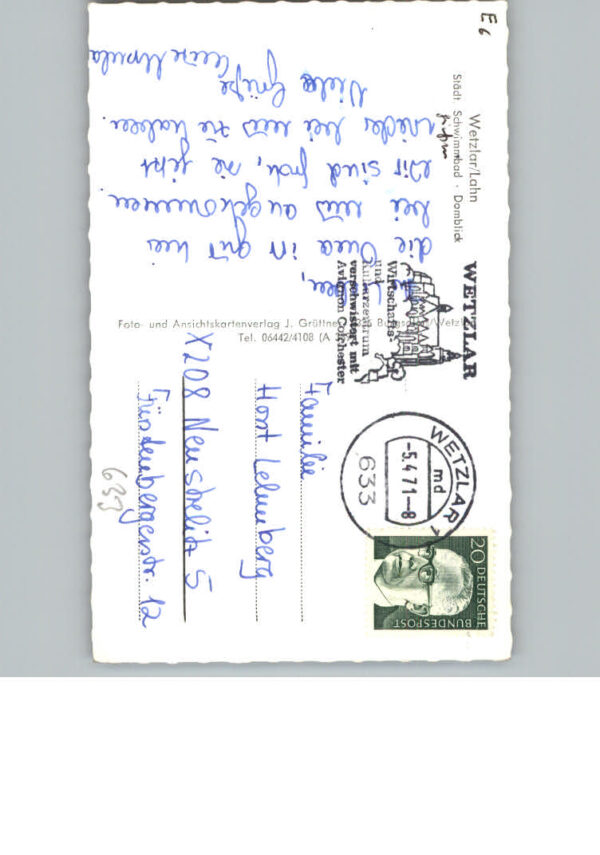 E 6
Wetzlar/Lahn
Städt. Schwimmbad · Domblick
die Oma ist gut hier
bei uns angekommen
Wir sind froh, sie jetzt
wieder bei uns zu haben.
Viele Grüße
Ursula
Foto- und Ansichtskartenverlag J. Grüttner
Tel. 06442/4108
WETZLAR
Wirtschafts-
und
Kulturzentrum
verschwistert mit
Avignon Colchester
WETZLAR 1
md
-5.4.71-8
633
20 DEUTSCHE
BUNDESPOST
Familie
Horst Lehmberg
X208 Neustrelitz 5
Fürstenbergerstr. 12
633